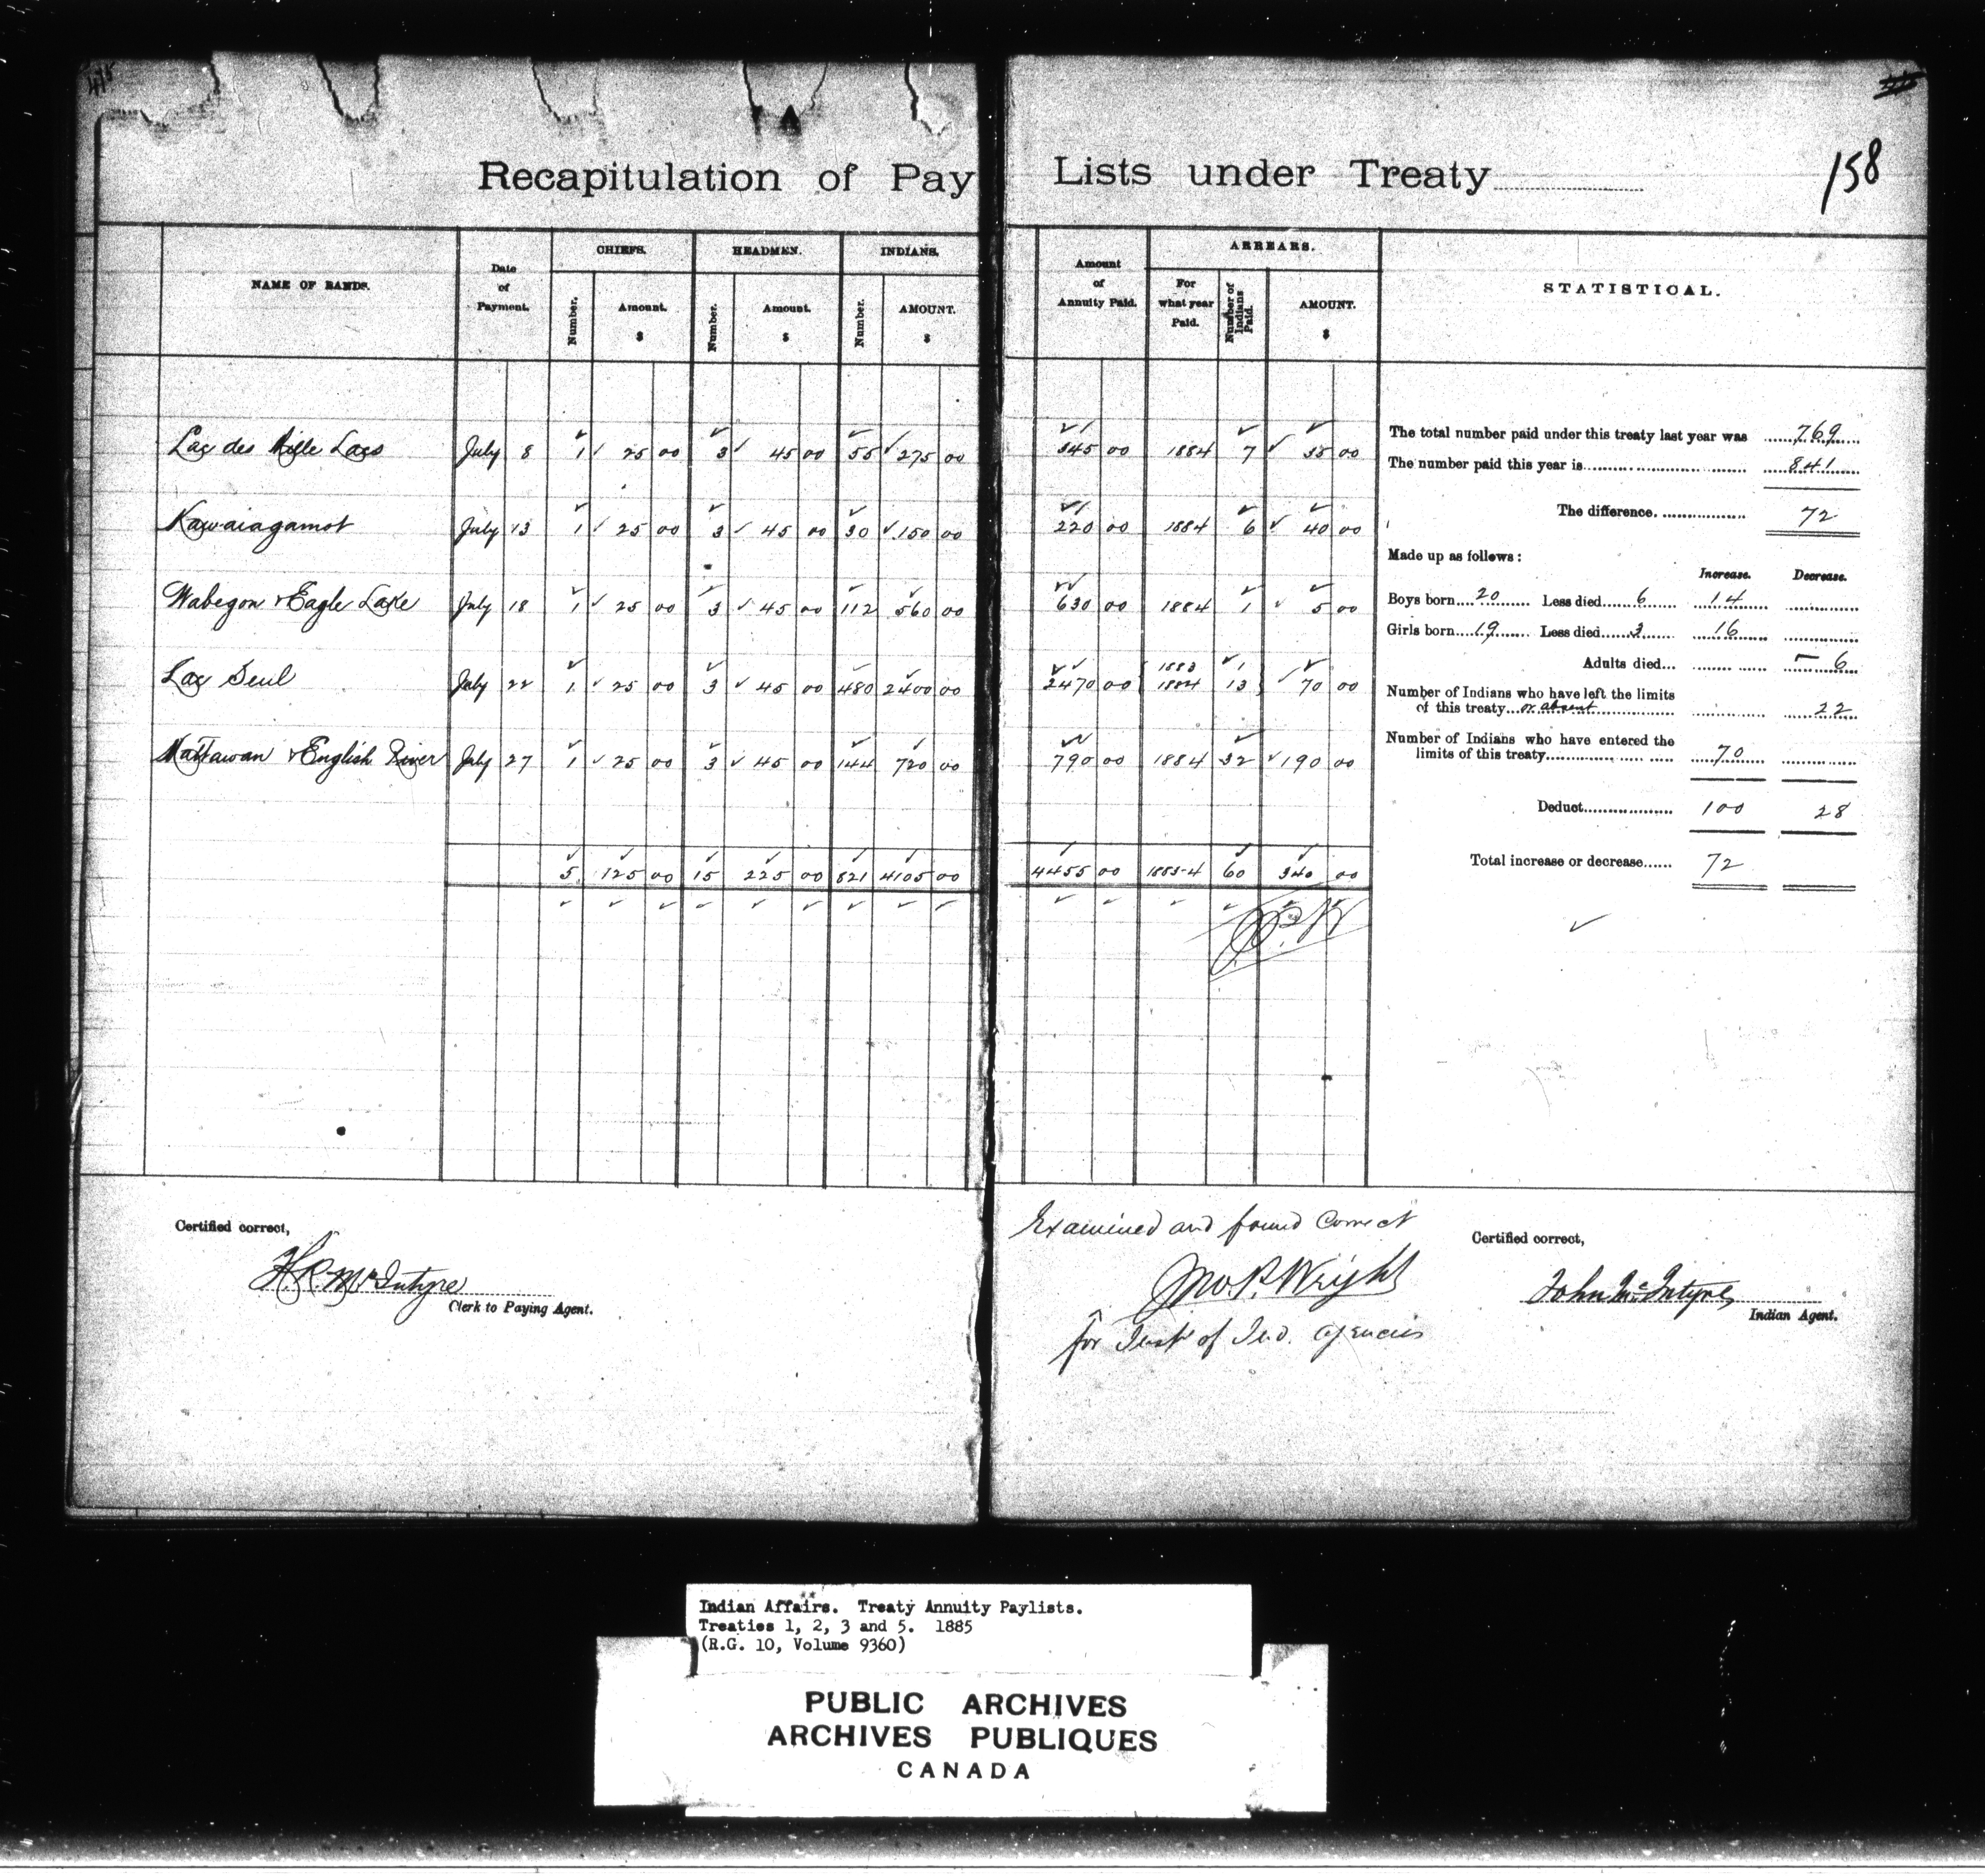 415
158
Recapitulation of Pay Lists under Treaty
NAME OF BANDS. | Date of Payment. | CHIEFS. Number. Amount. $ | HEADMEN. Number. Amount. $ | INDIANS. Number. AMOUNT. $ | Amount of Annuity Paid. | ARREARS. For what year Paid. Number of Indians Paid. AMOUNT. $ | STATISTICAL.
Lac des Mille Lacs July 8 1 25 00 3 45 00 55 275 00 345 00 1884 7 35 00
Kawaiagamot July 13 1 25 00 3 45 00 30 150 00 220 00 1884 6 40 00
Wabegon & Eagle Lake July 18 1 25 00 3 45 00 112 560 00 630 00 1884 1 5 00
Lac Seul July 22 1 25 00 3 45 00 480 2400 00 2470 00 1883 1 1884 13 70 00
Mattawan & English River July 27 1 25 00 3 45 00 144 720 00 790 00 1884 32 190 00
5 125 00 15 225 00 821 4105 00 4455 00 1883-4 60 340 00
J.P.W
The total number paid under this treaty last year was 769
The number paid this year is 841
The difference. 72
Made up as follows:
Increase. Decrease.
Boys born 20 Less died 6 14
Girls born 19 Less died 3 16
Adults died... 6
Number of Indians who have left the limits
of this treaty or absent 22
Number of Indians who have entered the
limits of this treaty 70
Deduct 100 28
Total increase or decrease 72
Certified correct,
H.R. McIntyre
Clerk to Paying Agent.
Examined and found Correct
Jno. P. Wright
for Inspr of Ind. Agencies
Certified correct,
John McIntyre
Indian Agent.
Indian Affairs. Treaty Annuity Paylists.
Treaties 1, 2, 3 and 5. 1885
(R.G. 10, Volume 9360)
PUBLIC ARCHIVES
ARCHIVES PUBLIQUES
CANADA